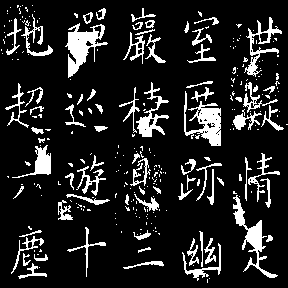 世凝情定
室匿跡幽
巖棲息三
禪巡遊十
地超六塵